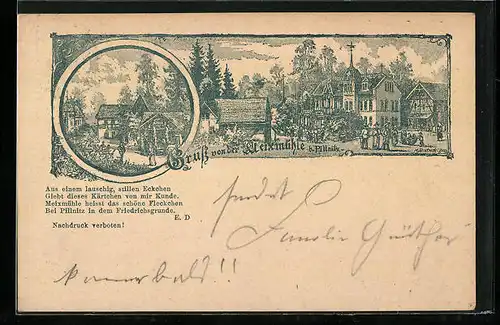 Gruß von der Meixmühle b. Pillnitz
Aus einem lauschig, stillen Eckchen
Giebt dieses Kärtchen von mir Kunde.
Meixmühle heisst das schöne Fleckchen
Bei Pillnitz in dem Friedrichsgrunde.
E. D
Nachdruck verboten!
sendet
Familie Günther
bald!!